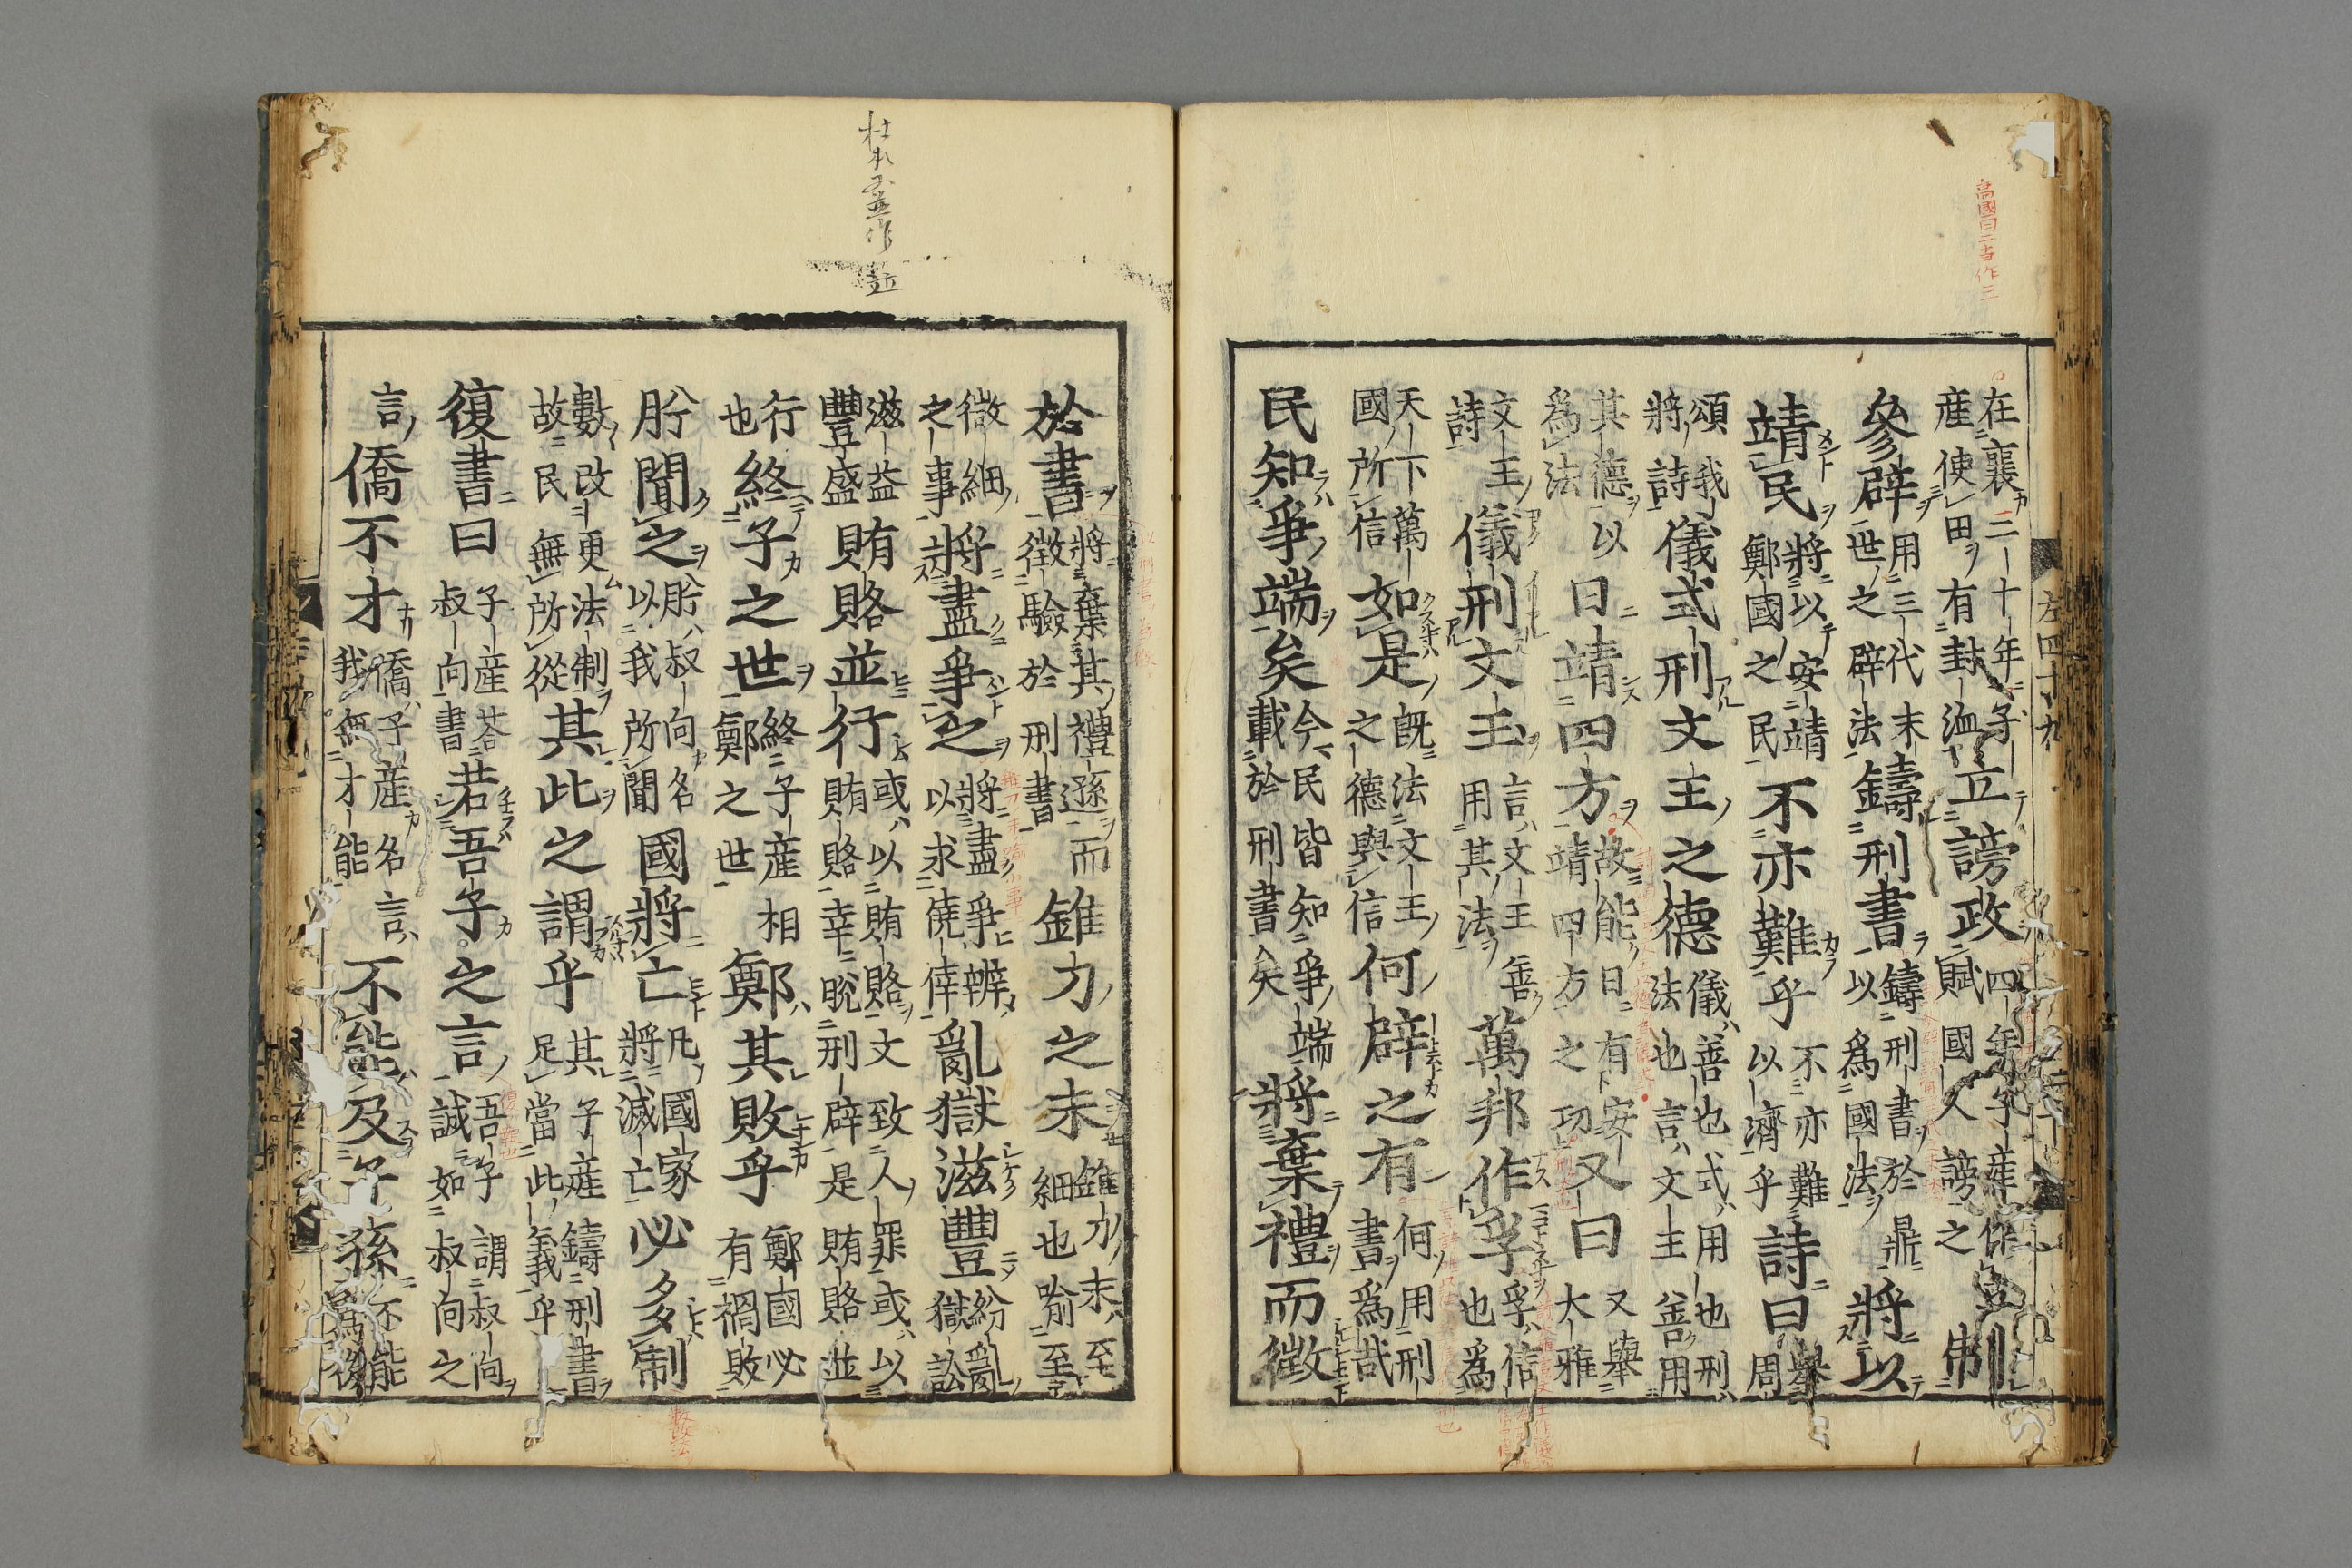 高國曰二當作三
左四十九
在襄三十年子產使田有封洫立謗政四年子產作丘賦國人謗之制
參辟用三代末世之辟法鑄刑書鑄刑書於鼎以爲國法將以
靖民將以安靖鄭國之民不亦難乎不亦難以濟乎詩曰舉周
頌我將詩儀式刑文王之德儀善也式用也刑法也言文王善用
其德以爲法日靖四方故能日有安靖四方之功又曰又舉大雅
文王詩儀刑文王言文王善用其法萬邦作孚孚信也爲
天下萬國所信如是旣法文王之德與信何辟之有何用刑書爲哉
民知爭端矣今民皆知爭端載於刑書矣將棄禮而徵
於書將棄其禮遜而徵驗於刑書錐刀之末錐刀末至細也喻至
微細之事將盡爭之將盡爭辨以求僥倖亂獄滋豐紛亂獄訟
滋益豐盛賄賂並行或以賄賂文致人罪或以賄賂幸脫刑辟是賄賂並
行也終子之世終子產相鄭之世鄭其敗乎鄭國必有禍敗
肸聞之肸叔向名以我所聞國將亡凡國家將滅亡必多制
數改更法制故民無所從其此之謂乎其子產鑄刑書足當此義乎
復書曰子產荅叔向書若吾子之言吾子謂叔向誠如叔向之
言僑不才僑子產名言我無才能不能及子孫不能爲後